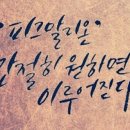 "피그말리온"
간절히 원하면
이루어진다